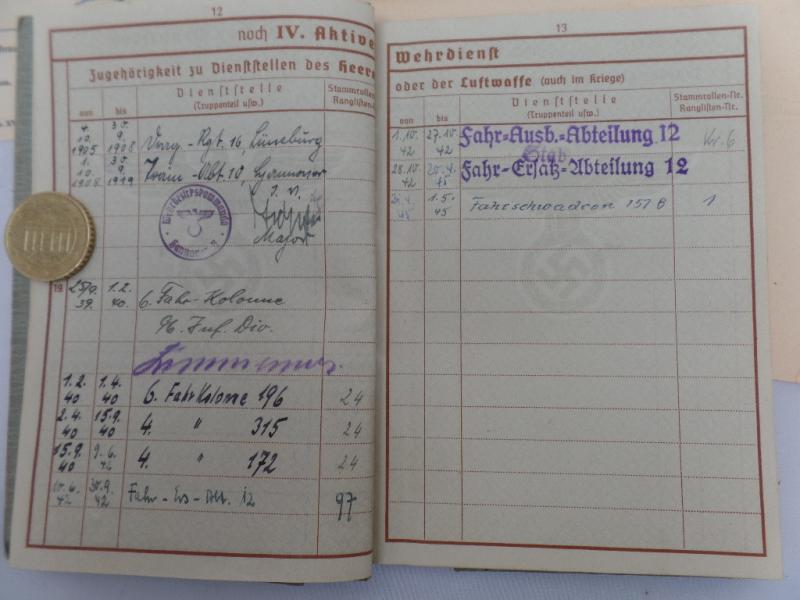 12
noch IV. Aktive
Zugehörigkeit zu Dienststellen des Heere
von
bis
Dienststelle
(Truppenteil usw.)
Stammrollen-
Ranglisten-
4. 10. 1905
30. 9. 1908
Drag.-Rgt. 16, Lüneburg
1. 10. 1908
30. 9. 1919
Train-Abt. 10, Hannover
Wehrbezirkskommando
Hannover
Major
19
25/9. 39.
1.2. 40.
6. Fahr-Kolonne
96. Inf. Div.
1.2. 40
1.4. 40
6. Fahrkolonne 196
24
2.4. 40
15.9. 40
4. " 315
24
15.9. 40
9.6.
4. " 172
24
10.6. 42
30.9. 42
Fahr-Ers-Abt. 12
97
13
Wehrdienst
oder der Luftwaffe (auch im Kriege)
von
bis
Dienststelle
(Truppenteil usw.)
Stammrollen-Nr.
Ranglisten-Nr.
1.10. 42
27.10. 42
Fahr-Ausb.-Abteilung 12
Kr. 6
Stab
28.10. 42
20.4. 45
Fahr-Ersatz-Abteilung 12
45
1.5. 45
Fahrschwadron 157 B
1